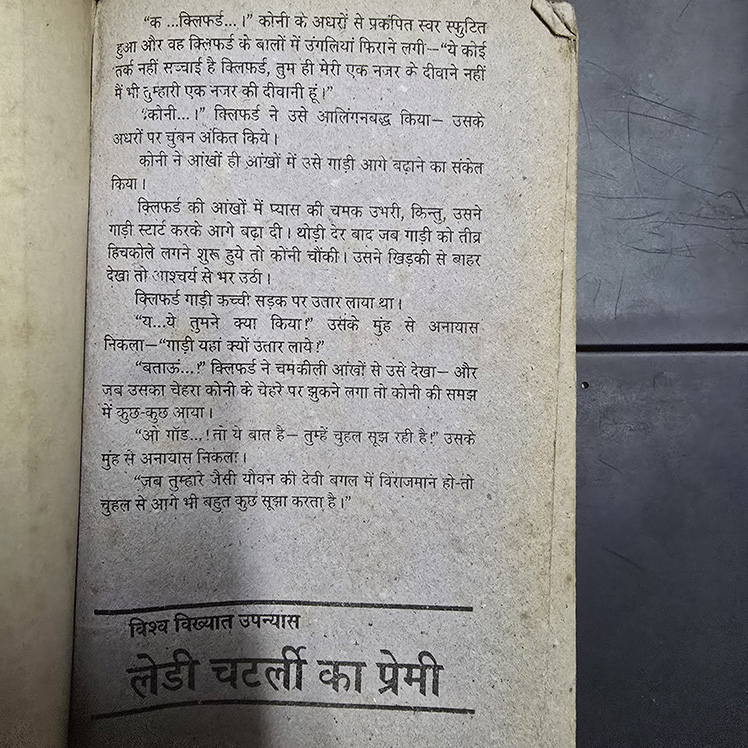 “क ...क्लिफर्ड...।” कोनी के अधरों से प्रकंपित स्वर स्फुटित
हुआ और वह क्लिफर्ड के बालों में उंगलियां फिराने लगी—“ये कोई
तर्क नहीं सच्चाई है क्लिफर्ड, तुम ही मेरी एक नजर के दीवाने नहीं
मैं भी तुम्हारी एक नजर की दीवानी हूं।”
“कोनी...।” क्लिफर्ड ने उसे आलिंगनबद्ध किया— उसके
अधरों पर चुंबन अंकित किये।
कोनी ने आंखों ही आंखों में उसे गाड़ी आगे बढ़ाने का संकेत
किया।
क्लिफर्ड की आंखों में प्यास की चमक उभरी, किन्तु, उसने
गाड़ी स्टार्ट करके आगे बढ़ा दी। थोड़ी देर बाद जब गाड़ी को तीव्र
हिचकोले लगने शुरू हुये तो कोनी चौंकी। उसने खिड़की से बाहर
देखा तो आश्चर्य से भर उठी।
क्लिफर्ड गाड़ी कच्ची सड़क पर उतार लाया था।
“य...ये तुमने क्या किया!” उसके मुंह से अनायास
निकला—“गाड़ी यहां क्यों उतार लाये!”
“बताऊं...!” क्लिफर्ड ने चमकीली आंखों से उसे देखा— और
जब उसका चेहरा कोनी के चेहरे पर झुकने लगा तो कोनी की समझ
में कुछ-कुछ आया।
“ओ गॉड...! तो ये बात है— तुम्हें चुहल सूझ रही है!” उसके
मुंह से अनायास निकला।
“जब तुम्हारे जैसी यौवन की देवी बगल में विराजमान हो-तो
चुहल से आगे भी बहुत कुछ सूझा करता है।”
विश्व विख्यात उपन्यास
लेडी चटर्ली का प्रेमी